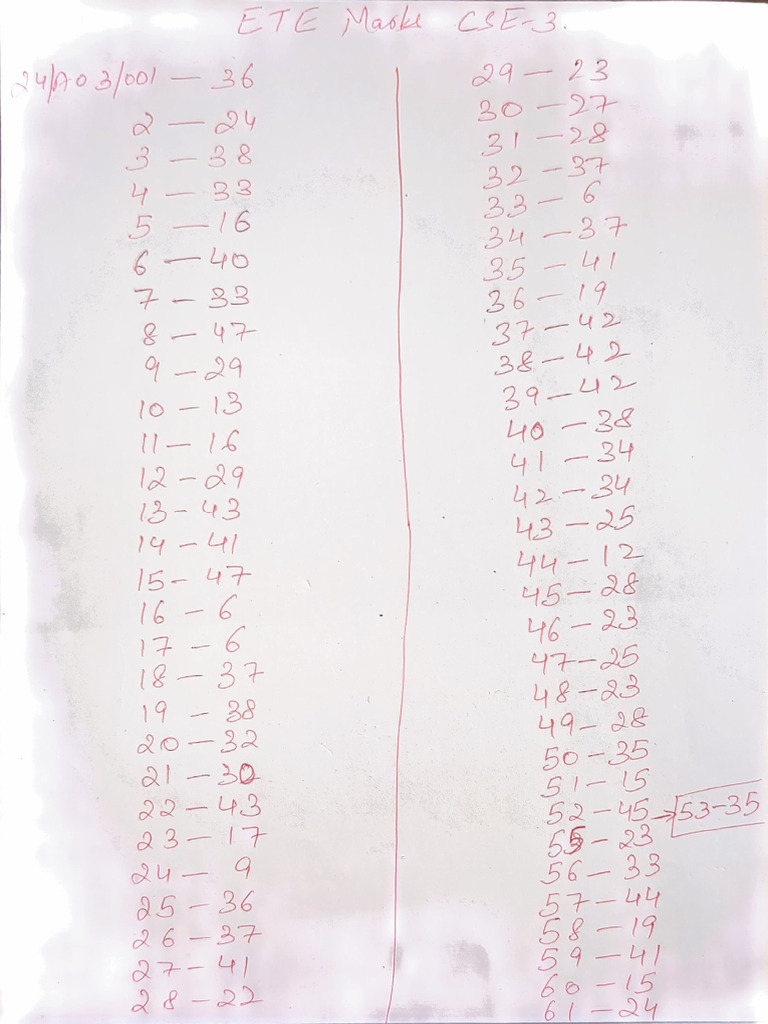 ETE Marks CSE-3.
24/A03/001 - 36
2 - 24
3 - 38
4 - 33
5 - 16
6 - 40
7 - 33
8 - 47
9 - 29
10 - 13
11 - 16
12 - 29
13 - 43
14 - 41
15 - 47
16 - 6
17 - 6
18 - 37
19 - 38
20 - 32
21 - 30
22 - 43
23 - 17
24 - 9
25 - 36
26 - 37
27 - 41
28 - 22
29 - 23
30 - 27
31 - 28
32 - 37
33 - 6
34 - 37
35 - 41
36 - 19
37 - 42
38 - 42
39 - 42
40 - 38
41 - 34
42 - 34
43 - 25
44 - 12
45 - 28
46 - 23
47 - 25
48 - 23
49 - 28
50 - 35
51 - 15
52 - 45 → 53-35
55 - 23
56 - 33
57 - 44
58 - 19
59 - 41
60 - 15
61 - 24